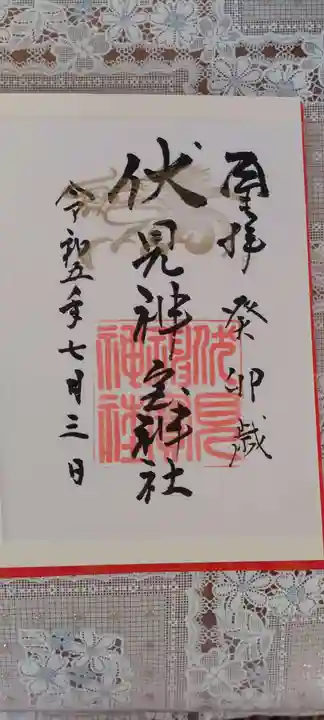 奉拝 癸卯歳
伏見神宝神社
令和五年七月三日
伏見
神宝
神社